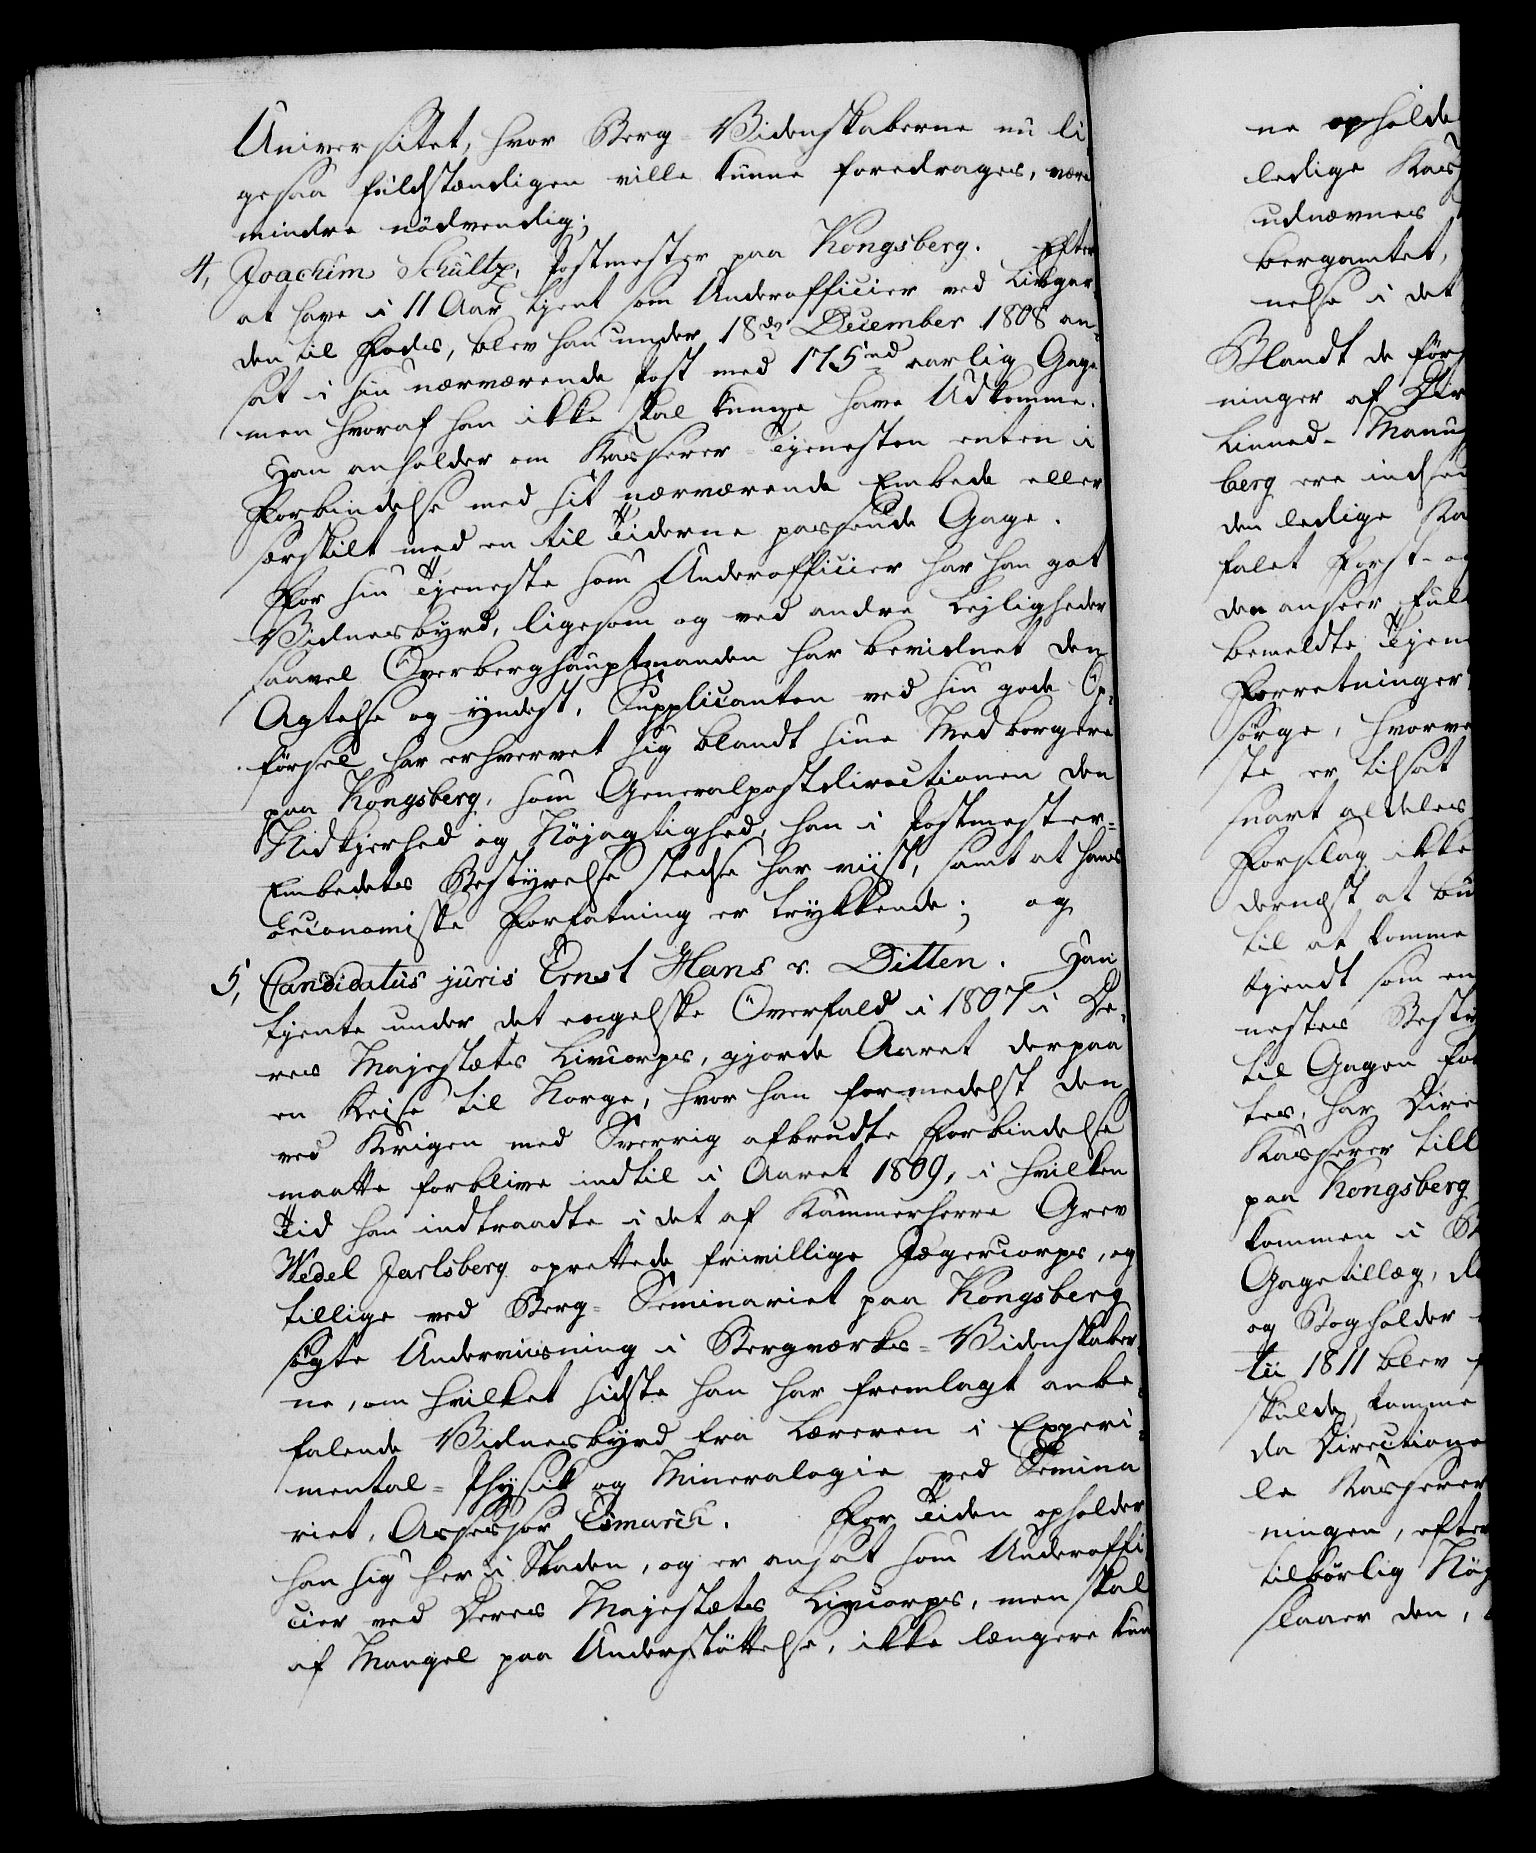 Universitet, hvor Berg-Videnskaberne nu li
gesaa fuldstændigen ville kunne foredrages, være
mindre nödvendig;
4, Joachim Schultz, Postmester paa Kongsberg. Efter
at have i 11 Aar tjent som Underofficier ved Livgar-
den til Fods, blev han under 18de December 1808 an-
sat i sin nærværende Post med 175rd aarlig Gage
men hvoraf han ikke skal kunne have Udkomme.
Han anholder om Kasserer-Tjenesten enten i
Forbindelse med sit nærværende Embede eller
særskilt med en til Tiderne passende Gage.
For sin Tjeneste som Underofficier har han got
Vidnesbyrd, ligesom og ved andre Lejligheder
saavel Overberghauptmanden har bevidnet den
Agtelse og Yndest, Supplicanten ved sin gode Op-
førsel har erhvervet sig blandt sine Medborgere
paa Kongsberg, som Generalpostdirectionen den
Nidkjerhed og Nöjagtighed, han i Postmester-
Embedets Bestyrelse stedse har viist, samt at hans
oeconomiske Forfatning er trykkende; og
5, Candidatus juris Ernst Hans v. Ditten. Han
tjente under det engelske Overfald i 1807 i De-
res Majestæts Livcorps, gjorde Aaret derpaa
en Reise til Norge, hvor han formedelst den
ved Krigen med Sverrig afbrudte Forbindelse
maatte forblive indtil i Aaret 1809, i hvilken
Tid han indtraadte i det af Kammerherre Grev
Wedel Jarlsberg oprettede frivillige Jægercorps, og
tillige ved Berg-Seminariet paa Kongsberg
søgte Underviisning i Bergværks-Videnskaber-
ne, om hvilket sidste han har fremlagt anbe-
falende Vidnesbyrd fra Læreren i Experi-
mental-Physik og Mineralogie ved Semina
riet, Assessor Esmarch. For Tiden opholder
han sig her i Staden, og er ansat som Underoffi
cier ved Deres Majestæts Livcorps, men skal
af Mangel paa Understöttelse, ikke længere kun
ne opholde
ledige Kass
udnævnes
bergamtet,
nelse i det
Blandt de førs
ninger af Dir
Linned-Manu
berg ere indsen
den ledige Ka
falet Forst- og
den anseer ful
bemeldte Tjen
Forretninger
sörge, hvorve
ste er tilsat
snart aldeles
Forslag ikke
dernæst at bu
til at komme
kjendt som en
nestes Besty
til Gagen for
tes, har Dire
Kasserer till
paa Kongsberg
kommen i B
Gagetillæg, de
og Bogholder
tii 1811 blev
skulde komme
da Directione
le Kasserer
ningen, efter
tilbörlig Nöj
slaaer den,